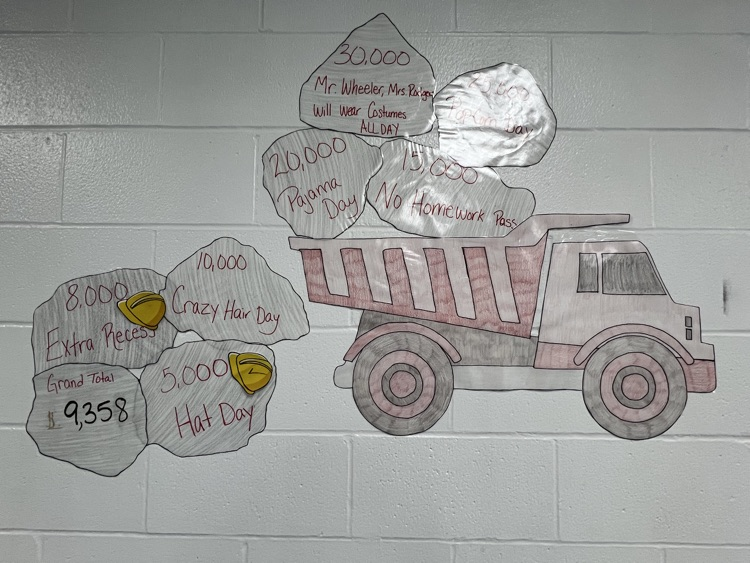 30,000
Mr. Wheeler, Mrs.
Will Wear Costumes
ALL DAY
Day
20,000
Pajama
Day
15,000
No Homework Pass
10,000
Crazy Hair Day
8,000
Extra Recess
5,000
Hat Day
Grand Total
$ 9,358